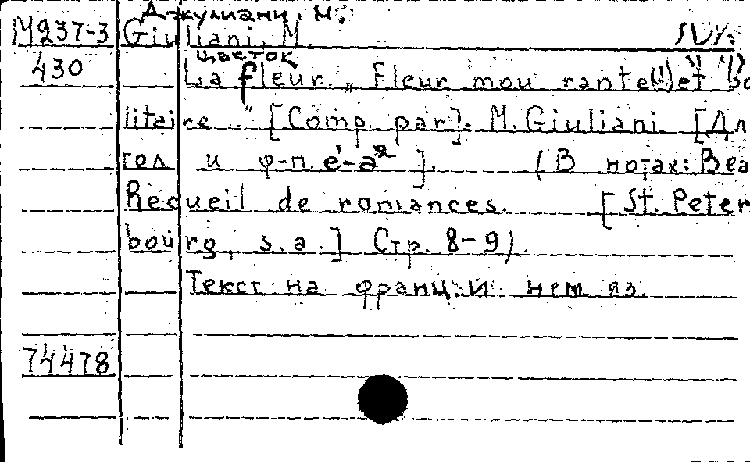 Джулиани, М.
М237-3 Giuliani, M.
цветок
430 La fleur. „Fleur mourante(!) et So
litaire." [Comp. par]. M. Giuliani. [Дл
гол и ф-п. e'-a²]. (В нотах: Bea
Recueil de romances. [St. Peter
bourg, s.a.] Стр. 8-9).
Текст на франц. и нем яз.
74478